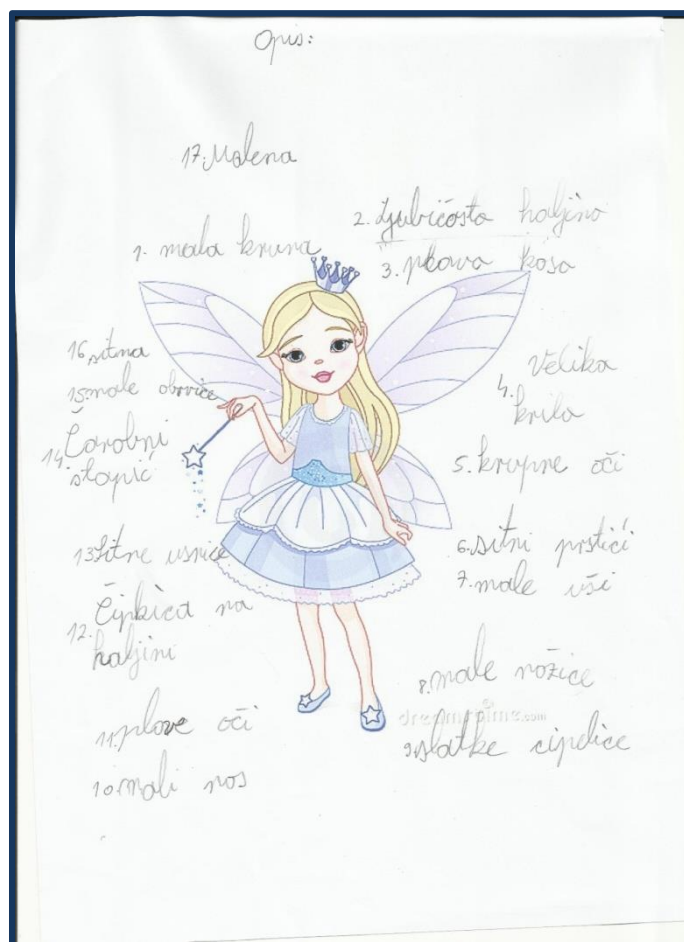 Opis:
17. Malena
1. mala kruna
2. Ljubičasta haljina
3. plava kosa
4. Velika
krila
5. krupne oči
6. sitni prstići
7. male uši
8. male nožice
dreamstime.com
9. slatke cipelice
10. mali nos
11. plave oči
12. Čipkica na
haljini
13. Sitne usnice
14. Čarobni
štapić
15. male obrvice
16. sitna